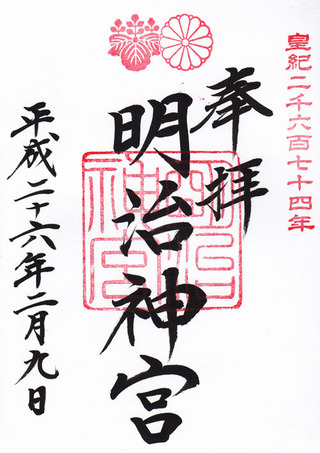 皇紀二千六百七十四年
奉拝
明治神宮
明治神宮
平成二十六年二月九日